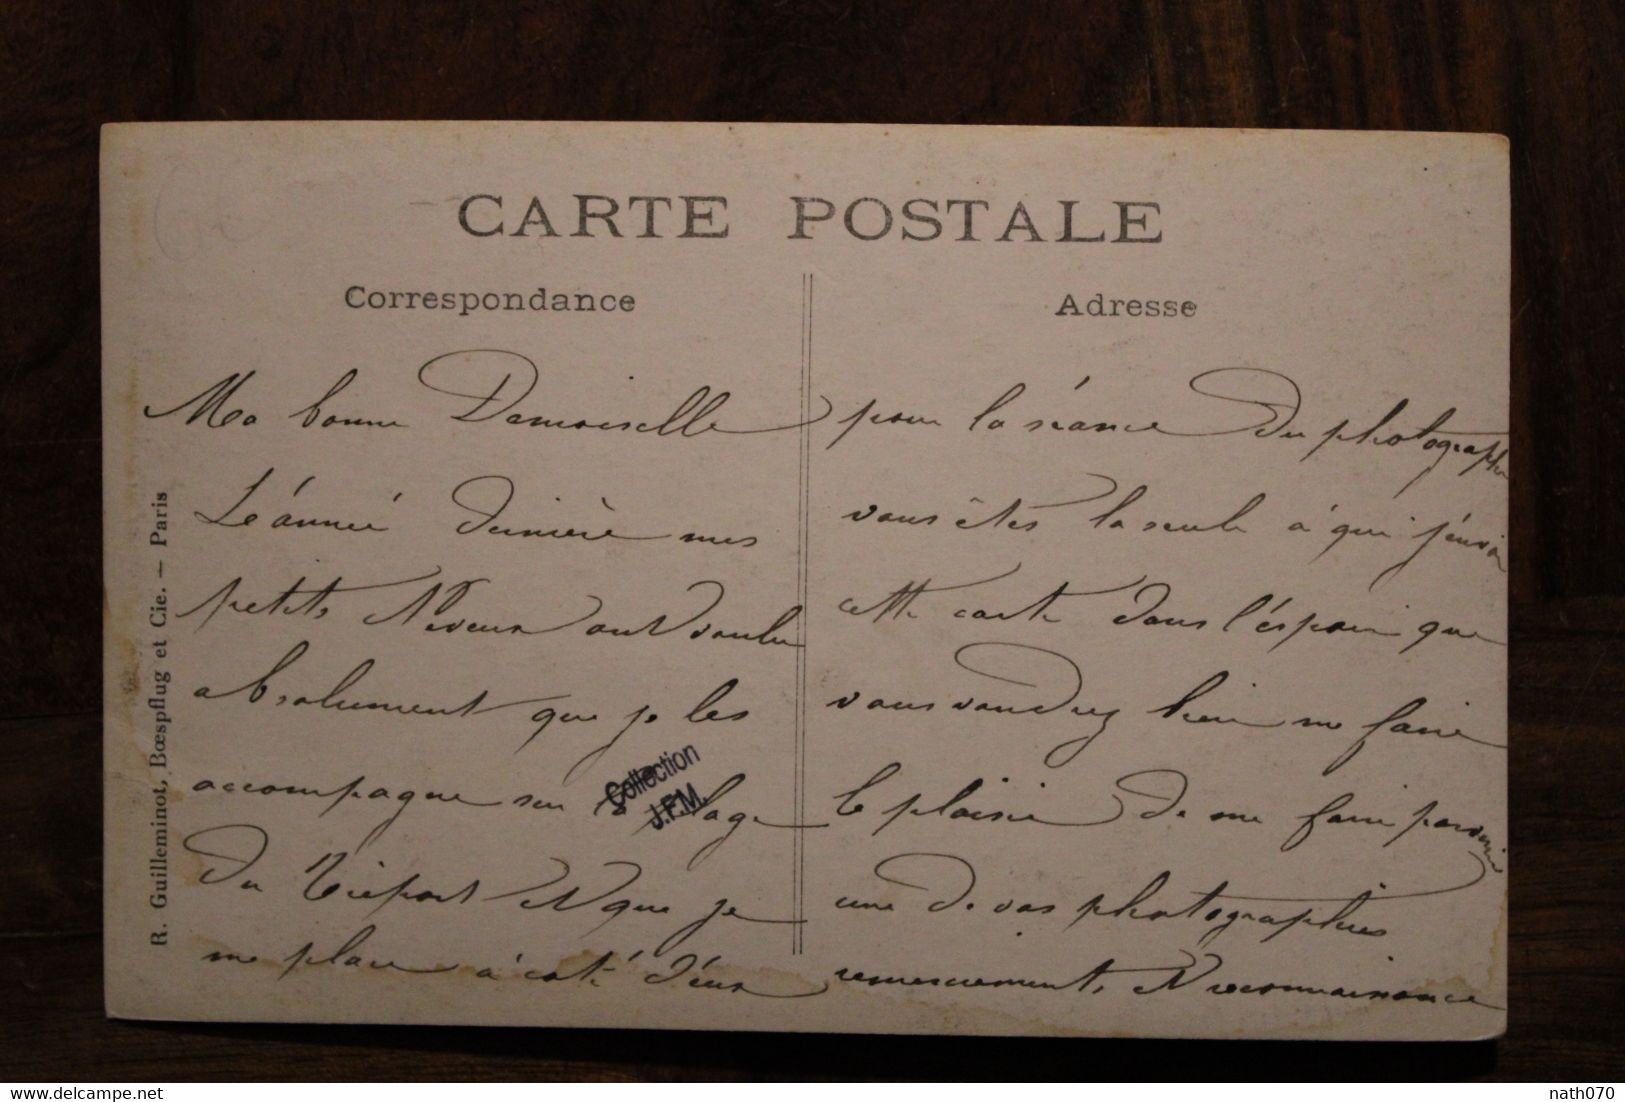 CARTE POSTALE
Correspondance
Adresse
Ma bonne Demoiselle
L'é'année dernière mes
petits Neveux ont voulu
absolument que je les
accompagne sur la plage
du Tréport et que je
me place à coté d'éux
pour la séance du photographe
vous êtes la seule à qui j'énvoie
cette carte dans l'éspoir que
vous voudrez bien me faire
le plaisir de me faire parvenir
une de vos photographies
remerciements et reconnaissance
R. Guilleminot, Bœspflug et Cie. — Paris
Collection
J.F.M.
delcampe.net
nath070